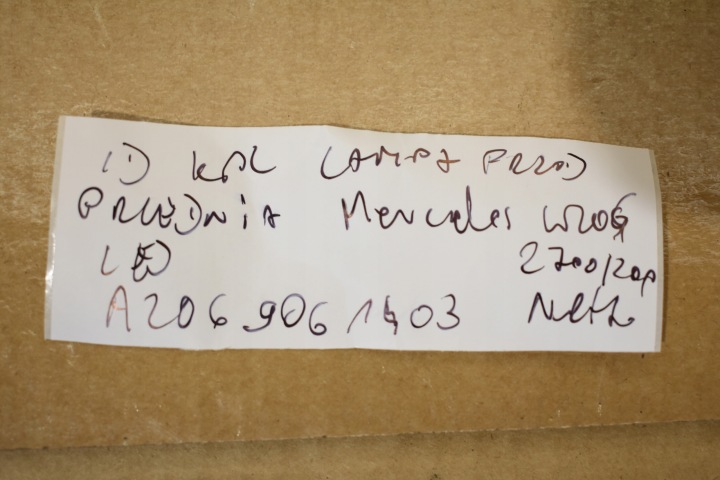 1) KPL LAMPA PRZÓD
PRZEDNIA Mercedes W206
LED 2700/
A206 906 1403 Netto